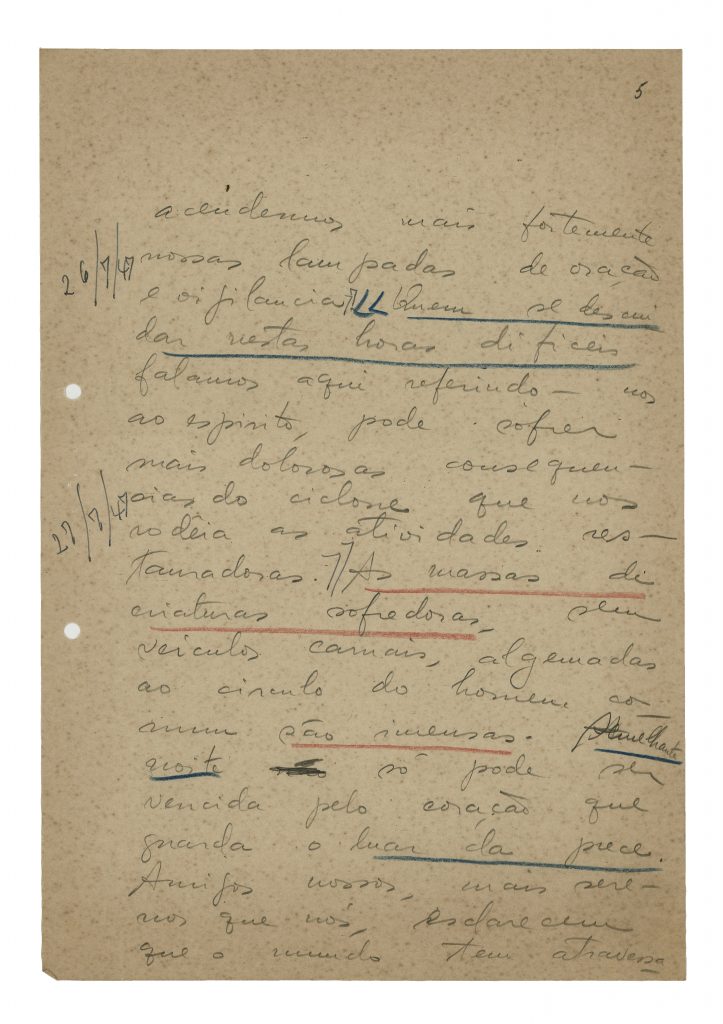 5
acendermos mais fortemente
26/7/47
nossas lampadas de oração
e vigilancia. Quem se descui
dar nestas horas dificeis
falamos aqui referindo-nos
ao espirito, pode sofrer
mais dolorosas consequen-
cias do ciclone que nos
27/7/47
rodêia as atividades res-
tauradoras. As massas de
criaturas sofredoras, sem
veiculos carnais, algemadas
ao circulo do homem co-
mum são imensas. Semelhante
noite só pode ser
vencida pelo coração que
guarda o luar da prece.
Amigos nossos, mais sere-
nos que nós, esclarecem
que o mundo tem atravessa